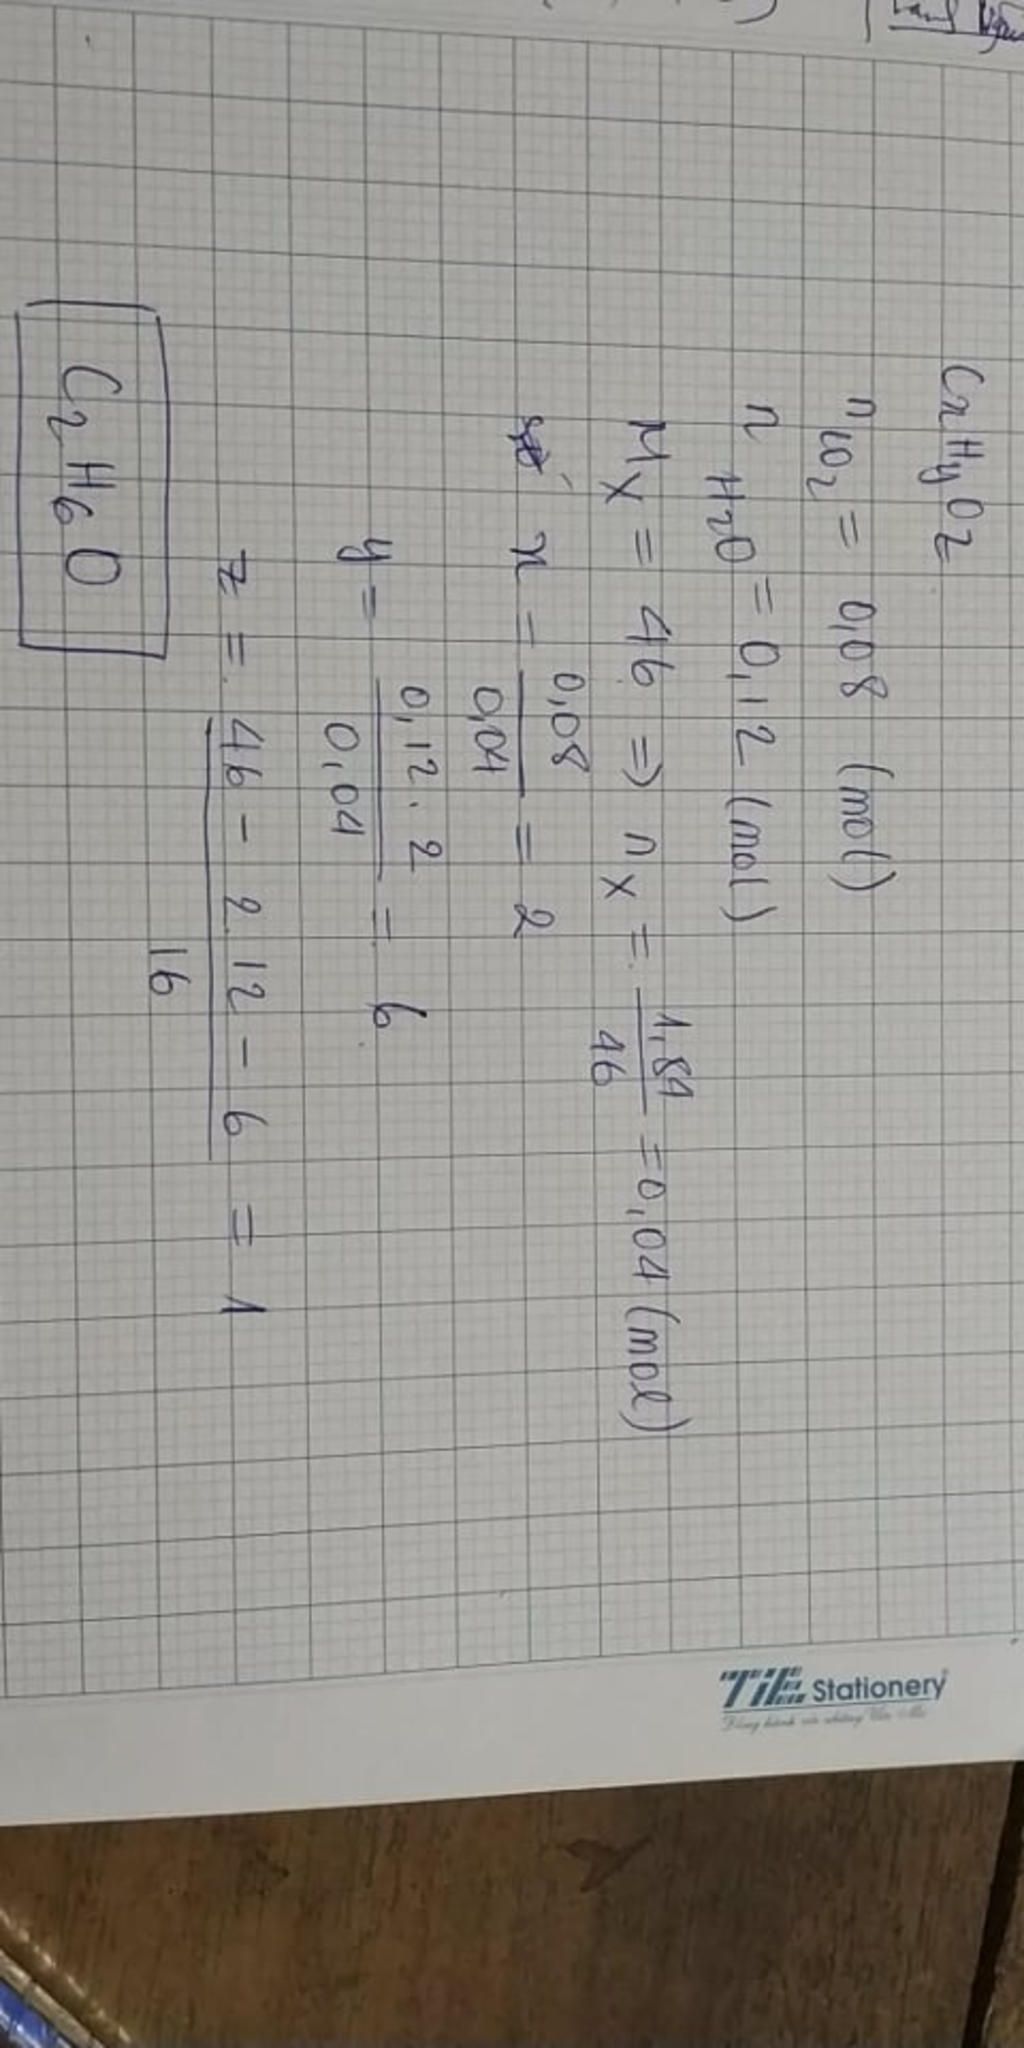 CxHyOz
nCO2 = 0,08 (mol)
n H2O = 0,12 (mol)
Mx = 46 => nx = 1,84 / 46 = 0,04 (mol)
x = 0,08 / 0,04 = 2
y = 0,12.2 / 0,04 = 6
z = 46 - 2.12 - 6 / 16 = 1
C2H6O
TiE Stationery